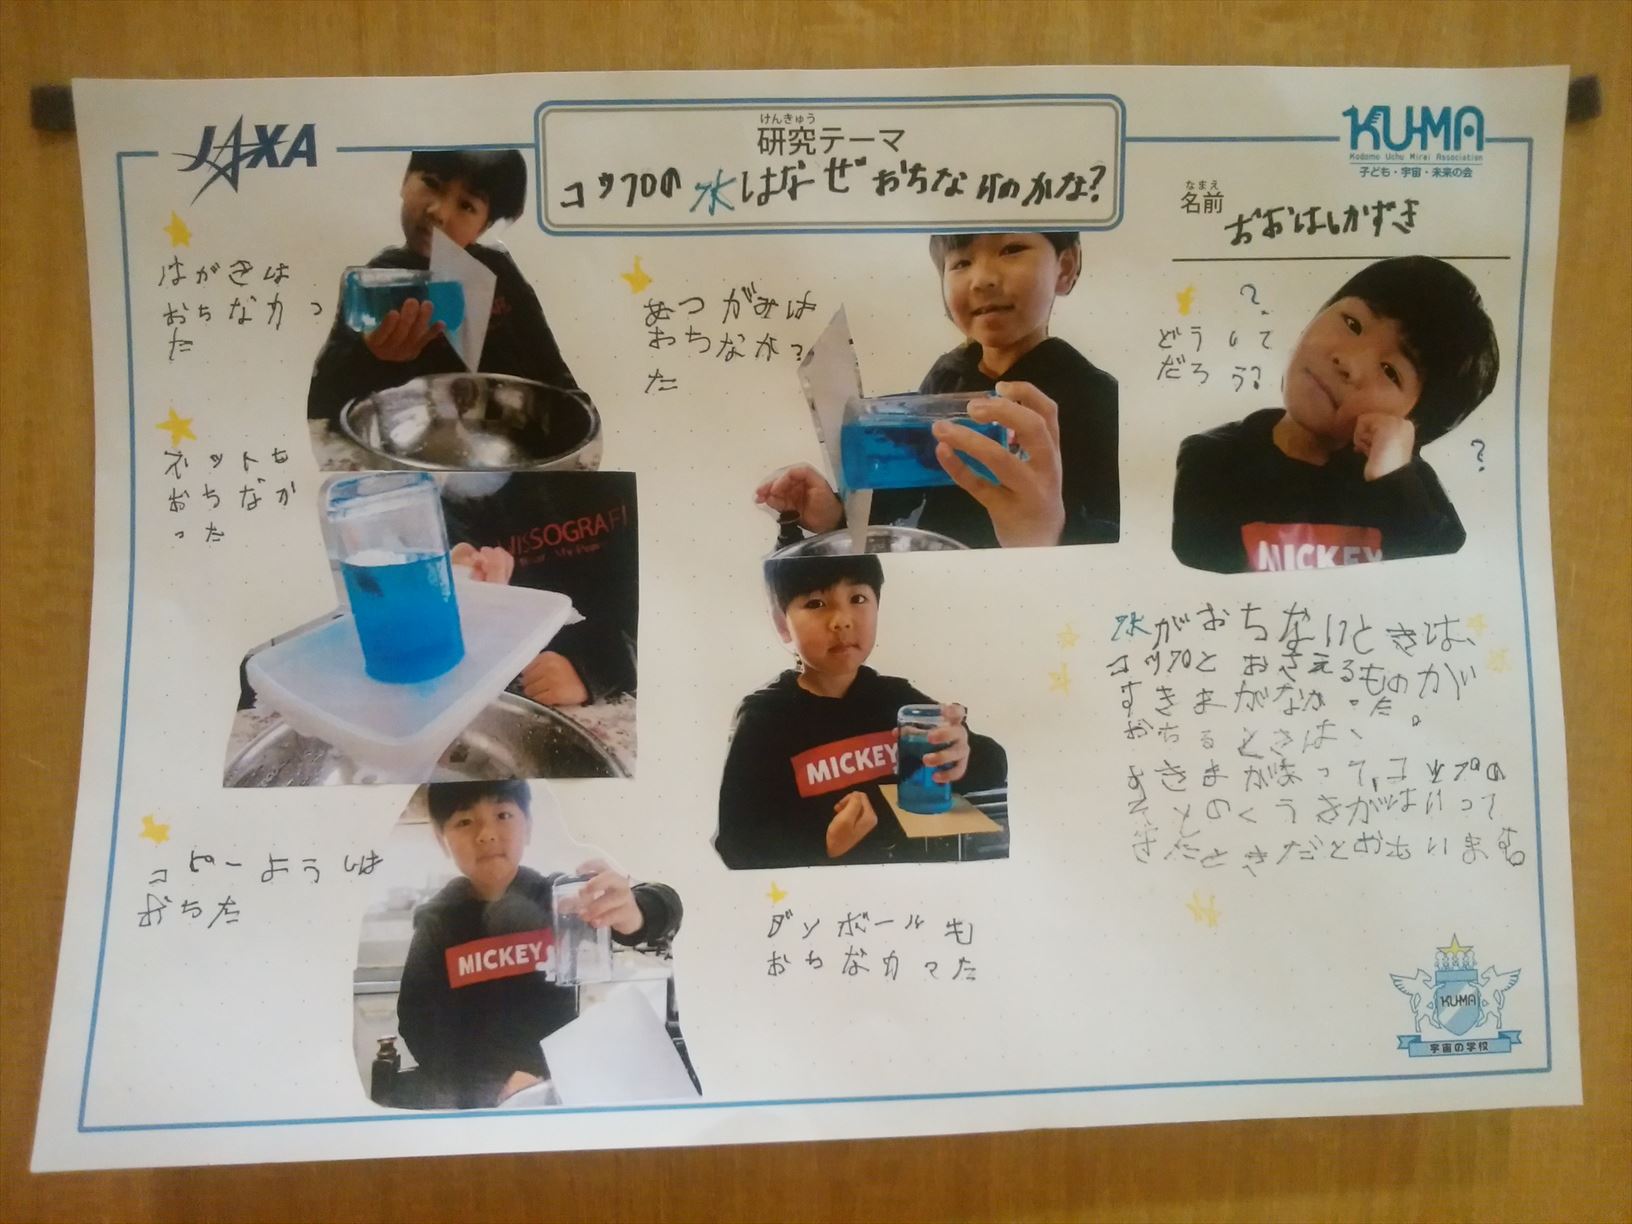 JAXA
けんきゅう
研究テーマ
コップの水はなぜおちないのかな?
KUMA
Kodomo Uchu Mirai Association
子ども・宇宙・未来の会
なまえ
名前
おおはしかずき
はがきは
おちなかっ
た
ネットも
おちなか
った
あつがみは
おちなかっ
た
?
どうして
だろう?
?
MICKEY
MICKEY
コピーようしは
おちた
MICKEY
ダンボールも
おちなかった
水がおちないときは、
コップとおさえるものがい
すきまがなかった。
おちるときは、
すきまが
コップの
そとのくうきがはいって
きたときだとおもいます
KU-MA
宇宙の学校